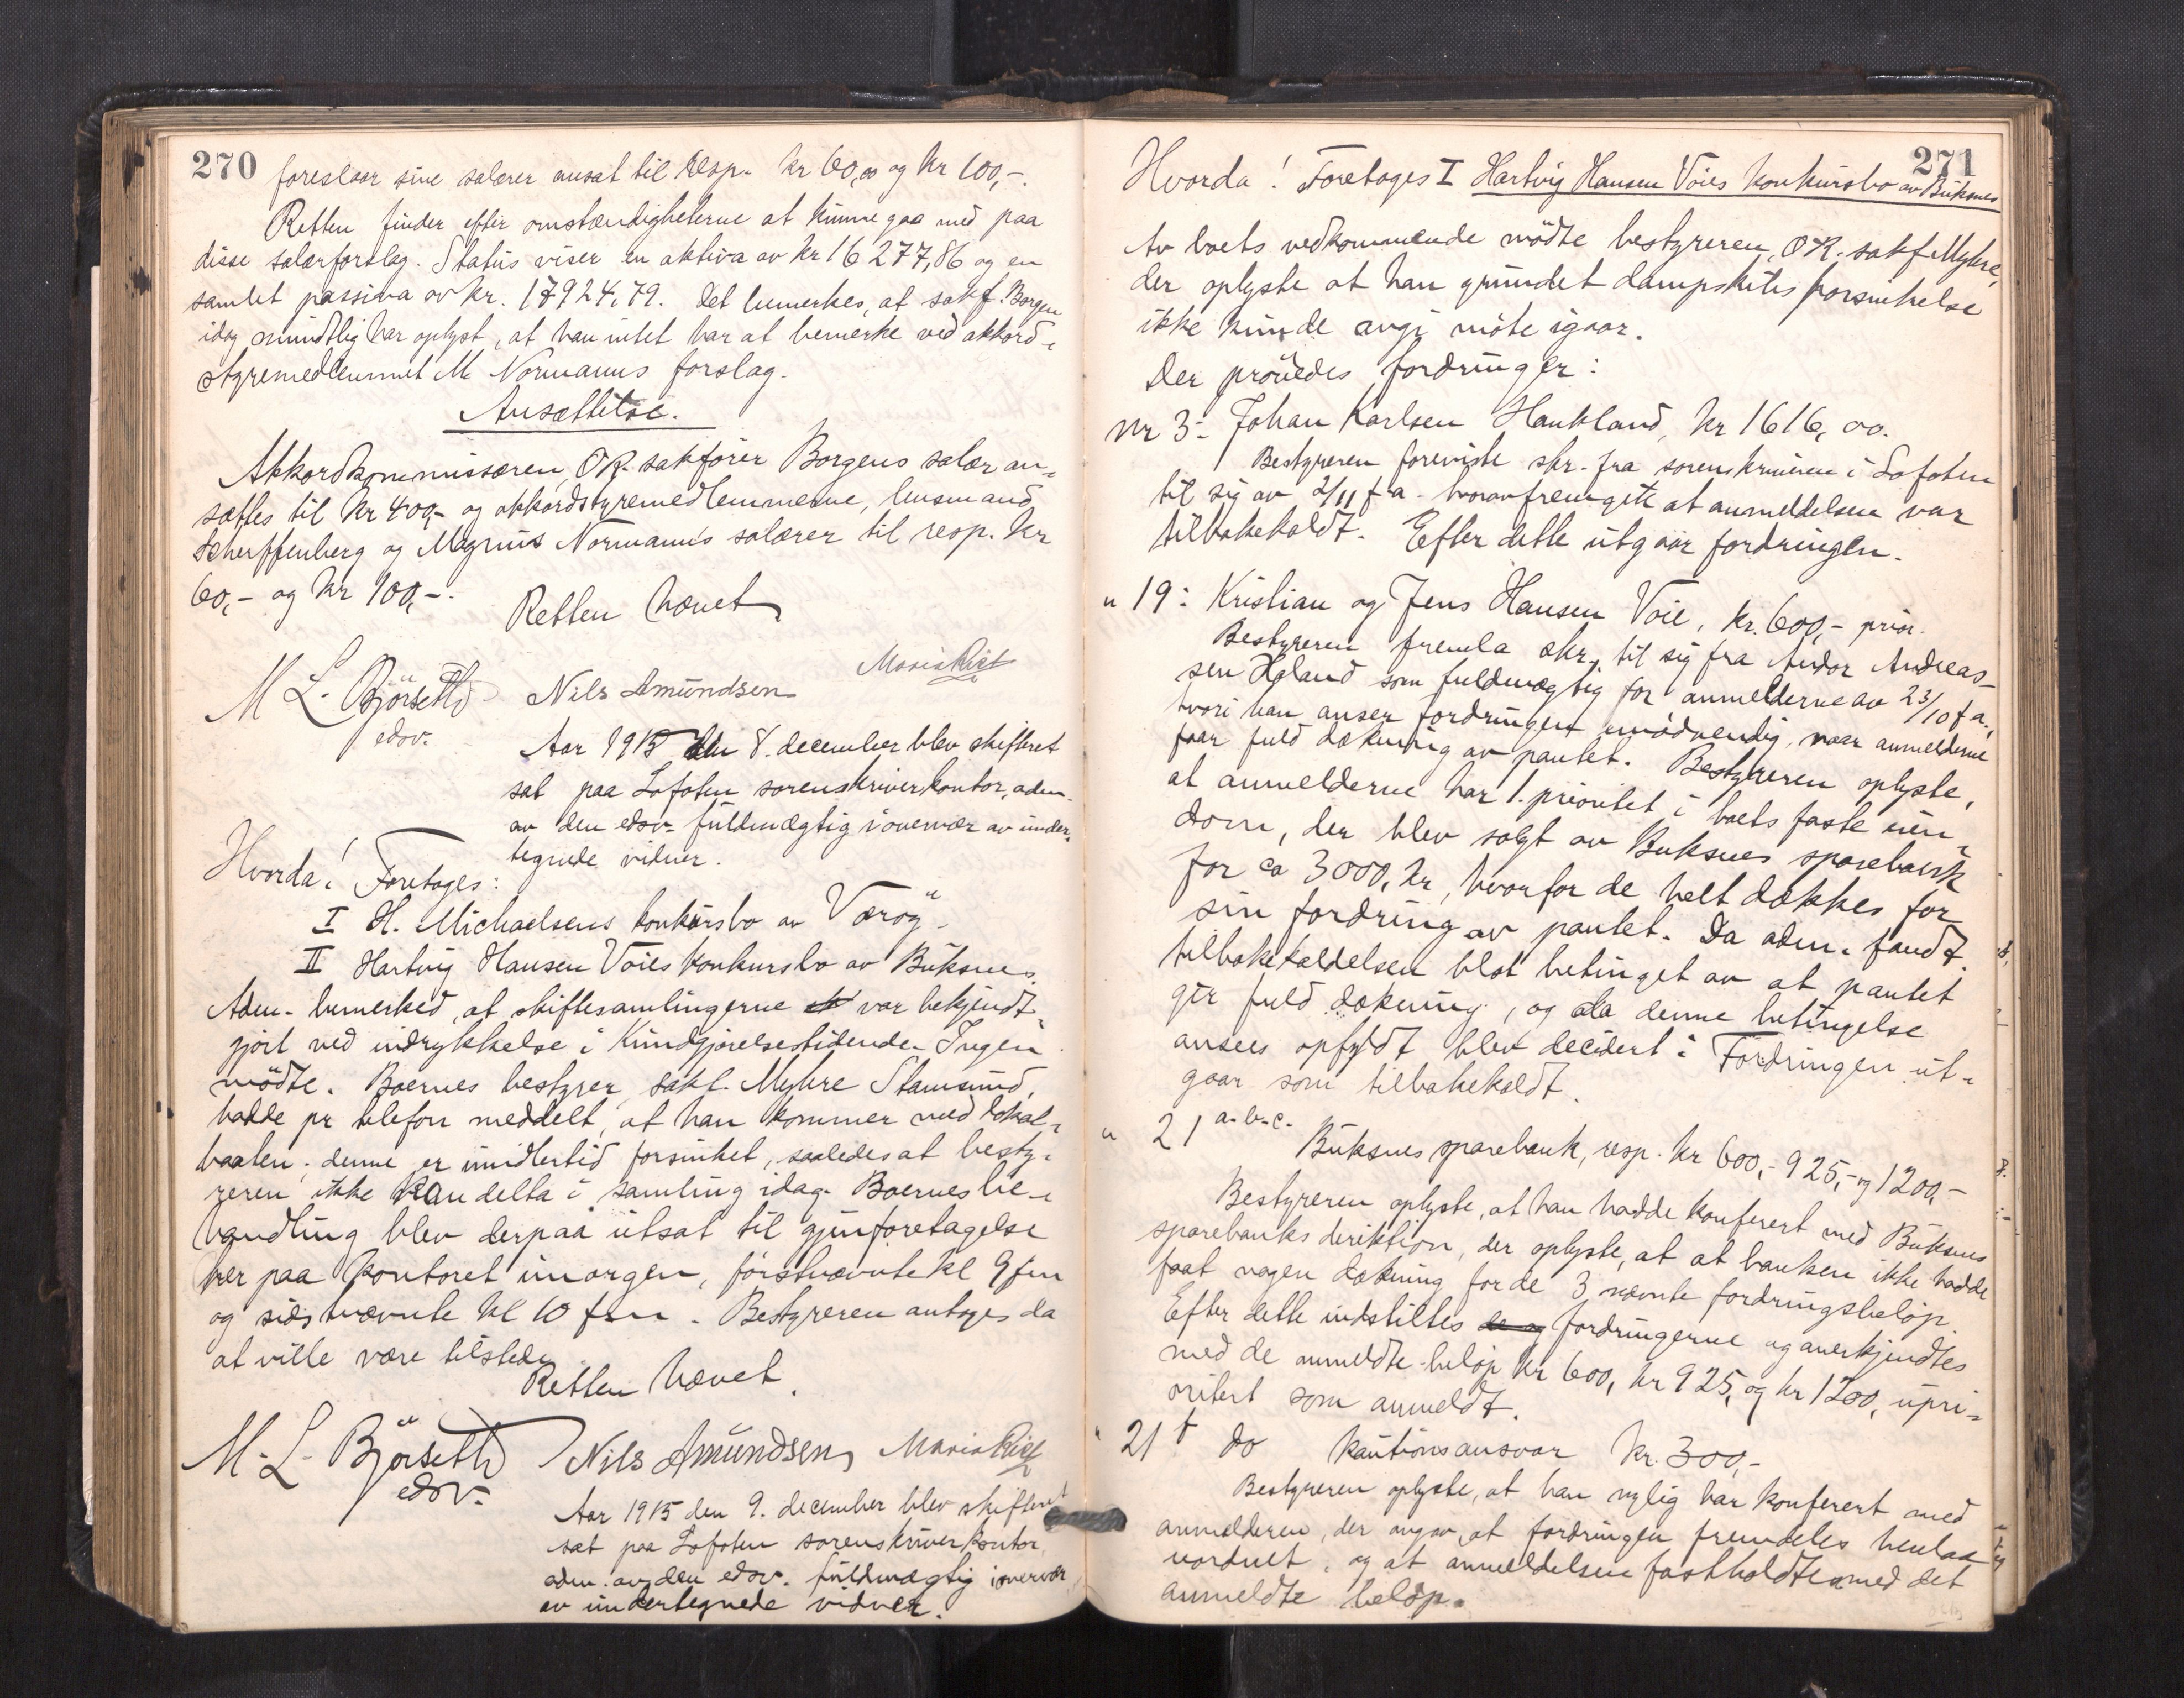 270
foreslaar sine salærer ansat til resp. kr 60,00 og kr 100,-.
Retten finder efter omstændigheterne at kunne gaa med paa
disse salærforslag. Status viser en aktiva av kr 16 277,86 og en
samlet passiva av kr. 17924,79. Det bemerkes, at sakf. Borgen
idag mundtlig har oplyst, at han intet har at bemerke ved akkord-
styremedlemmet M Normanns forslag.
Ansættelse.
Akkordkommissæren, OR. sakfører Borgens salær an-
sættes til kr 400,- og akkordstyremedlemmerne, lensmand
Scherffenberg og Magnus Normanns salærer til resp. kr
60,- og kr 100,-.
Retten hævet
M L. Björseth Nils Amundsen Maria Rist
edsv.
Aar 1915 den 8. december blev skifteret
sat paa Lofoten sorenskriverkontor, adm.
av den edsv. fuldmægtig i overvær av under-
tegnede vidner.
Hvorda! Foretages:
I H. Michaelsens konkursbo av Værøy
II Hartvig Hansen Voies konkursbo av Buksnes
Adm. bemerked, at skiftesamlingerne var bekjendt-
gjort ved indrykkelse i Kundgjørelsestidende. Ingen
mødte. Boernes bestyrer, sakf. Myhre Stamsund,
hadde pr telefon meddelt, at han kommer med lokal-
baaten; denne er imidlertid forsinket, saaledes at besty-
reren ikke kan delta i samling idag. Boernes be-
handling blev derpaa utsat til gjenforetagelse
her paa kontoret imorgen, førstnævnte kl 9 fm
og sidstnævnte kl 10 fm. Bestyreren antages da
at ville være tilstede
Retten hævet.
M. L. Björseth Nils Amundsen Maria Rist
edsv.
Aar 1915 den 9. december blev skifteret
sat paa Lofoten sorenskriverkontor,
adm. av den edsv. fuldmægtig i overvær
av undertegnede vidner.
271
Hvorda! Foretages I Hartvig Hansen Voies konkursbo av Buksnes
Av boets vedkommende mödte bestyreren, OR. sakf Myhre,
der oplyste at han grundet dampskibs forsinkelse
ikke kunde avgi möte igaar.
Der prövedes fordringer:
Nr 3: Johan Karlsen Haukland, kr 1616,00.
Bestyreren foreviste skr. fra sorenskriveren i Lofoten
til sig av 2/11 f a. hvorav fremgik at anmeldelsen var
tilbakekaldt. Efter dette utgaar fordringen.
" 19: Kristian og Jens Hansen Voie, kr. 600,- prior.
Bestyreren fremla skr. til sig fra Andor Andreas-
sen Høland som fuldmægtig for anmelderne av 23/10 f a.,
hvori han anser fordringen unødvendig, naar anmelderne
faar fuld dækning av pantet. Bestyreren oplyste,
at anmelderne har 1. prioritet i boets faste eien-
dom, der blev solgt av Buksnes sparebank
for ca 3000, kr, hvorfor de helt dækkes for
sin fordring av pantet. Da adm. fandt
tilbakekaldelsen blot betinget av at pantet
gir fuld dækning, og da denne betingelse
ansees opfyldt blev decidert: Fordringen ut-
gaar som tilbakekaldt.
" 21 a.b.c. Buksnes sparebank, resp. kr 600,- 925,- og 1200,-
Bestyreren oplyste, at han hadde konferert med Buksnes
sparebanks direktion, der oplyste, at at banken ikke hadde
faat nogen dækning for de 3 nævnte fordringsbeløp.
Efter dette indstiltes fordringerne og anerkjendtes
med de anmeldte beløp kr 600, kr 925, og kr 1200, upri-
oritert som anmeldt.
" 21 f do kautionsansvar kr. 300,-
Bestyreren oplyste, at han nylig har konferert med
anmelderen, der angav, at fordringen fremdeles henlaa
uordnet, og at anmeldelsen fastholdtes med det
anmeldte beløp.